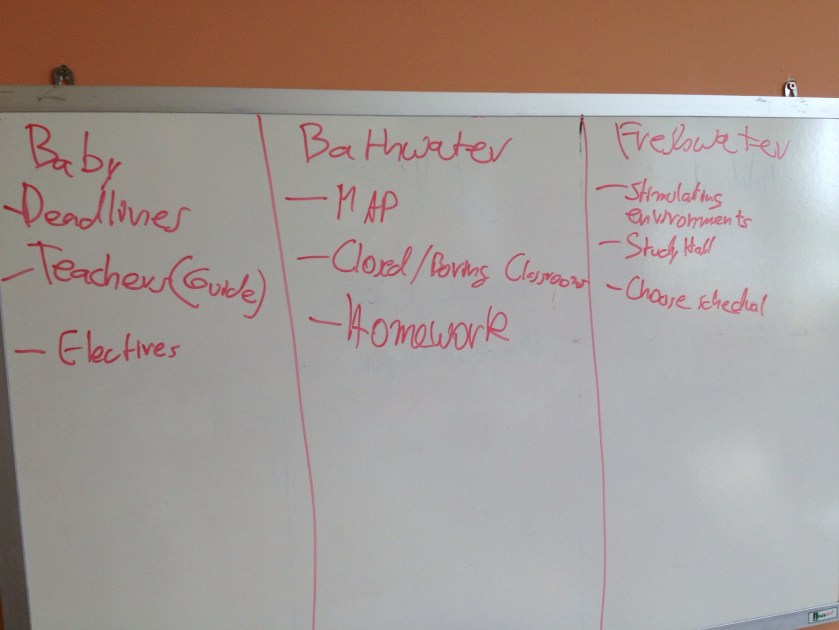 Baby
- Deadlines
- Teachers (Guide)
- Electives
Bathwater
- MAP
- Closed/Boring Classroom
- Homework
Freshwater
- Stimulating
environments
- Study Hall
- Choose schedual